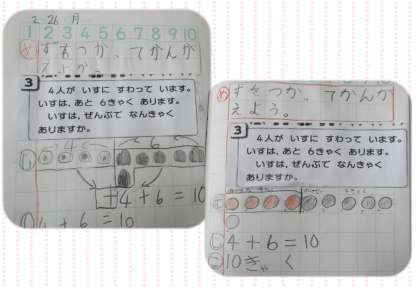 2.26月
1 2 3 4 5 6 7 8 9 10
め ずをつかってかんが
えよう。
3
4人が いすに すわって います。
いすは、あと 6きゃく あります。
いすは、ぜんぶで なんきゃく
ありますか。
4
6
4+6=10
4+6=10
め ずをつかってかんが
えよう。
3
4人が いすに すわって います。
いすは、あと 6きゃく あります。
いすは、ぜんぶで なんきゃく
ありますか。
4+6=10
10きゃく